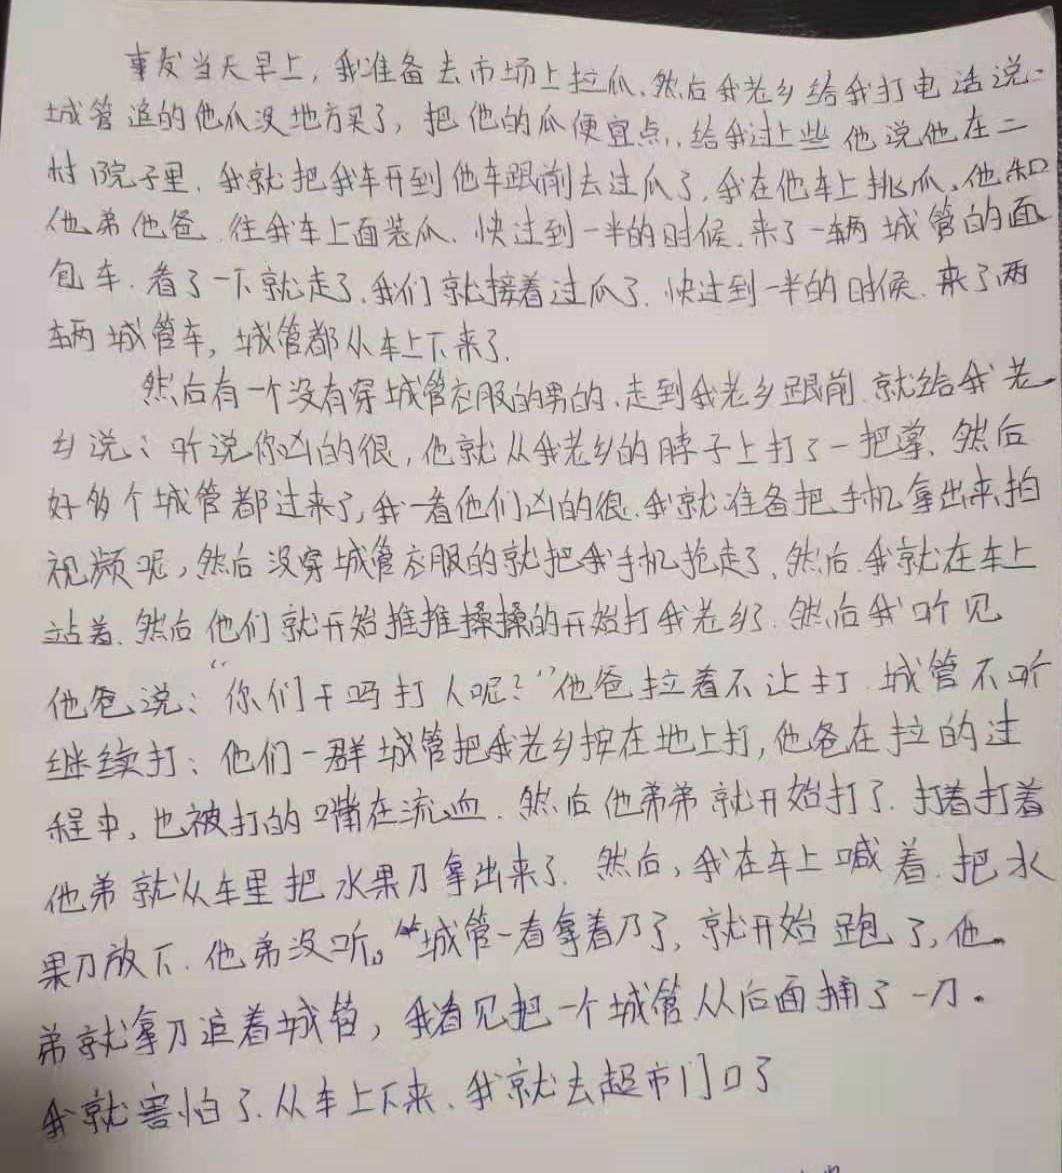 事发当天早上，我准备去市场上拉瓜、然后我老乡给我打电话说：
城管追的他瓜没地方买了，把他的瓜便宜点，给我过上些他说他在二
村院子里、我就把我车开到他车跟前去过瓜了，我在他车上挑瓜，他和
他弟他爸往我车上面装瓜、快过到一半的时候、来了一辆城管的面
包车、看了一下就走了、我们就接着过瓜了、快过到一半的时候、来了两
辆城管车，城管都从车上下来了、
然后有一个没有穿城管衣服的男的、走到我老乡跟前就给我老
乡说：听说你凶的很，他就从我老乡的脖子上打了一把掌、然后
好多个城管都过来了，我一看他们凶的很、我就准备把手机拿出来拍
视频呢，然后没穿城管衣服的就把我手机抢走了、然后、我就在车上
站着、然后他们就开始推推搡搡的开始打我老乡、然后我听见
他爸说：“你们干吗打人呢？”他爸拉着不让打城管不听
继续打；他们一群城管把我老乡按在地上打，他爸在拉的过
程中，也被打的嘴在流血、然后他弟弟就开始打了、打着打着
他弟就从车里把水果刀拿出来了、然后，我在车上喊着、把水
果刀放下、他弟没听。城管一看拿着刀了，就开始跑了，他
弟就拿刀追着城管，我看见把一个城管从后面捅了一刀。
我就害怕了、从车上下来、我就去超市门口了